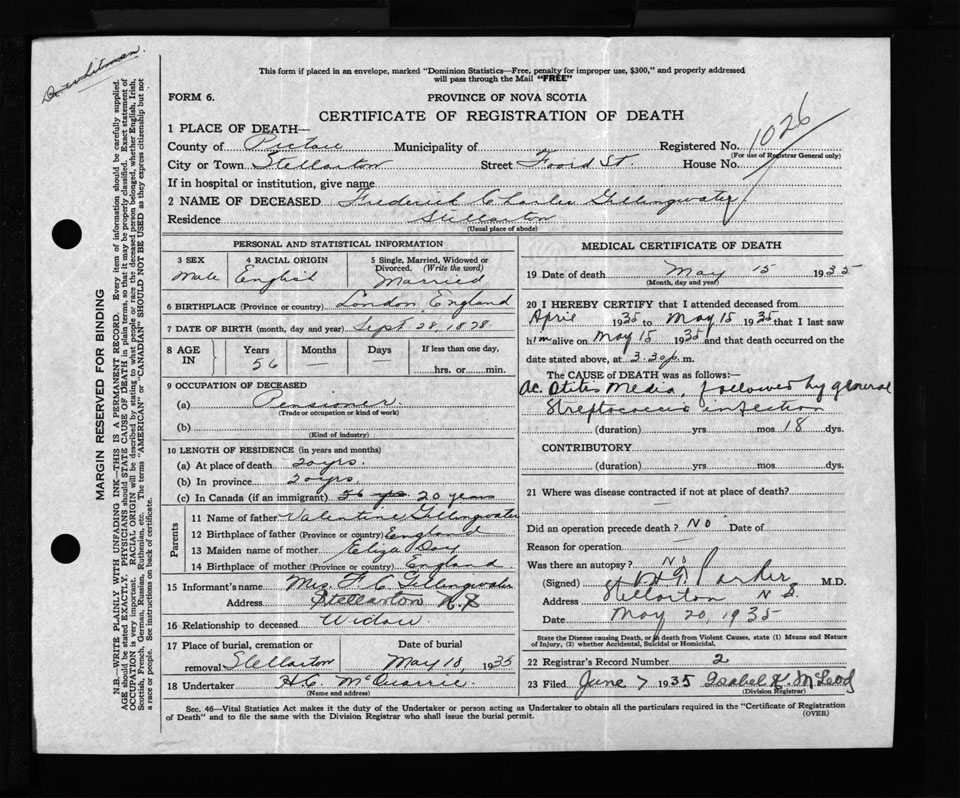 This form if placed in an envelope, marked "Dominion Statistics—Free, penalty for improper use, $300," and properly addressed
will pass through the Mail "FREE"
FORM 6.
PROVINCE OF NOVA SCOTIA
CERTIFICATE OF REGISTRATION OF DEATH
1 PLACE OF DEATH—
County of Pictou Municipality of Registered No. 1026
(For use of Registrar General only)
City or Town Stellarton Street Foord St. House No.
If in hospital or institution, give name
2 NAME OF DECEASED Frederick Charles Gillingwater
Residence Stellarton
(Usual place of abode)
PERSONAL AND STATISTICAL INFORMATION
3 SEX 4 RACIAL ORIGIN 5 Single, Married, Widowed or
Divorced. (Write the word)
Male English Married
6 BIRTHPLACE (Province or country) London, England
7 DATE OF BIRTH (month, day and year) Sept. 28, 1878.
8 AGE IN Years Months Days If less than one day,
56 — hrs. or min.
9 OCCUPATION OF DECEASED
(a) Pensioner.
(Trade or occupation or kind of work)
(b)
(Kind of industry)
10 LENGTH OF RESIDENCE (in years and months)
(a) At place of death 20 yrs.
(b) In province 20 yrs.
(c) In Canada (if an immigrant) 56 yrs 20 years
Parents
11 Name of father Valentine Gillingwater
12 Birthplace of father (Province or country) England
13 Maiden name of mother Eliza Day
14 Birthplace of mother (Province or country) England
15 Informant's name Mrs. F. C. Gillingwater
Address Stellarton N.S
16 Relationship to deceased Widow
17 Place of burial, cremation or Date of burial
removal Stellarton May 18, 1935
18 Undertaker H.C. McQuarrie
(Name and address)
MEDICAL CERTIFICATE OF DEATH
19 Date of death May 15 1935
(Month, day and year)
20 I HEREBY CERTIFY that I attended deceased from
April 1935 to May 15 1935 that I last saw
him alive on May 15 1935 and that death occurred on the
date stated above, at 3.30 p. m.
The CAUSE of DEATH was as follows:—
Ac. Otitis Media, followed by general
Streptococcus infection
(duration) yrs mos 18 dys.
CONTRIBUTORY
(duration) yrs mos dys.
21 Where was disease contracted if not at place of death?
—
Did an operation precede death? No Date of
Reason for operation —
Was there an autopsy? No
(Signed) Parker M.D.
Address Stellarton N S
Date May 20, 1935
State the Disease causing Death, or in death from Violent Causes, state (1) Means and Nature
of Injury, (2) whether Accidental, Suicidal or Homicidal.
22 Registrar's Record Number 2
23 Filed June 7 1935 Isabel K. McLeod
(Division Registrar)
Sec. 46—Vital Statistics Act makes it the duty of the Undertaker or person acting as Undertaker to obtain all the particulars required in the "Certificate of Registration
of Death" and to file the same with the Division Registrar who shall issue the burial permit.
(OVER)
MARGIN RESERVED FOR BINDING
N.B.—WRITE PLAINLY WITH UNFADING INK—THIS IS A PERMANENT RECORD. Every item of information should be carefully supplied.
AGE should be stated EXACTLY. PHYSICIANS should STATE CAUSE OF DEATH in plain terms, so that it may be properly classified. Exact statement of
OCCUPATION is very important. RACIAL ORIGIN will be described by stating to what people or race the deceased person belonged, whether English, Irish,
Scottish, French, German, Russian, Ruthenian, etc. The terms "AMERICAN" or "CANADIAN" SHOULD NOT BE USED as they express citizenship but not
a race or people. See instructions on back of certificate.